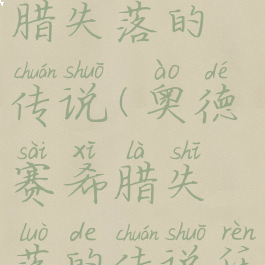 腊失落的
chuán shuō ào dé
传说(奥德
sài xī là shī
赛希腊失
luò de chuán shuō rèn
落的传说